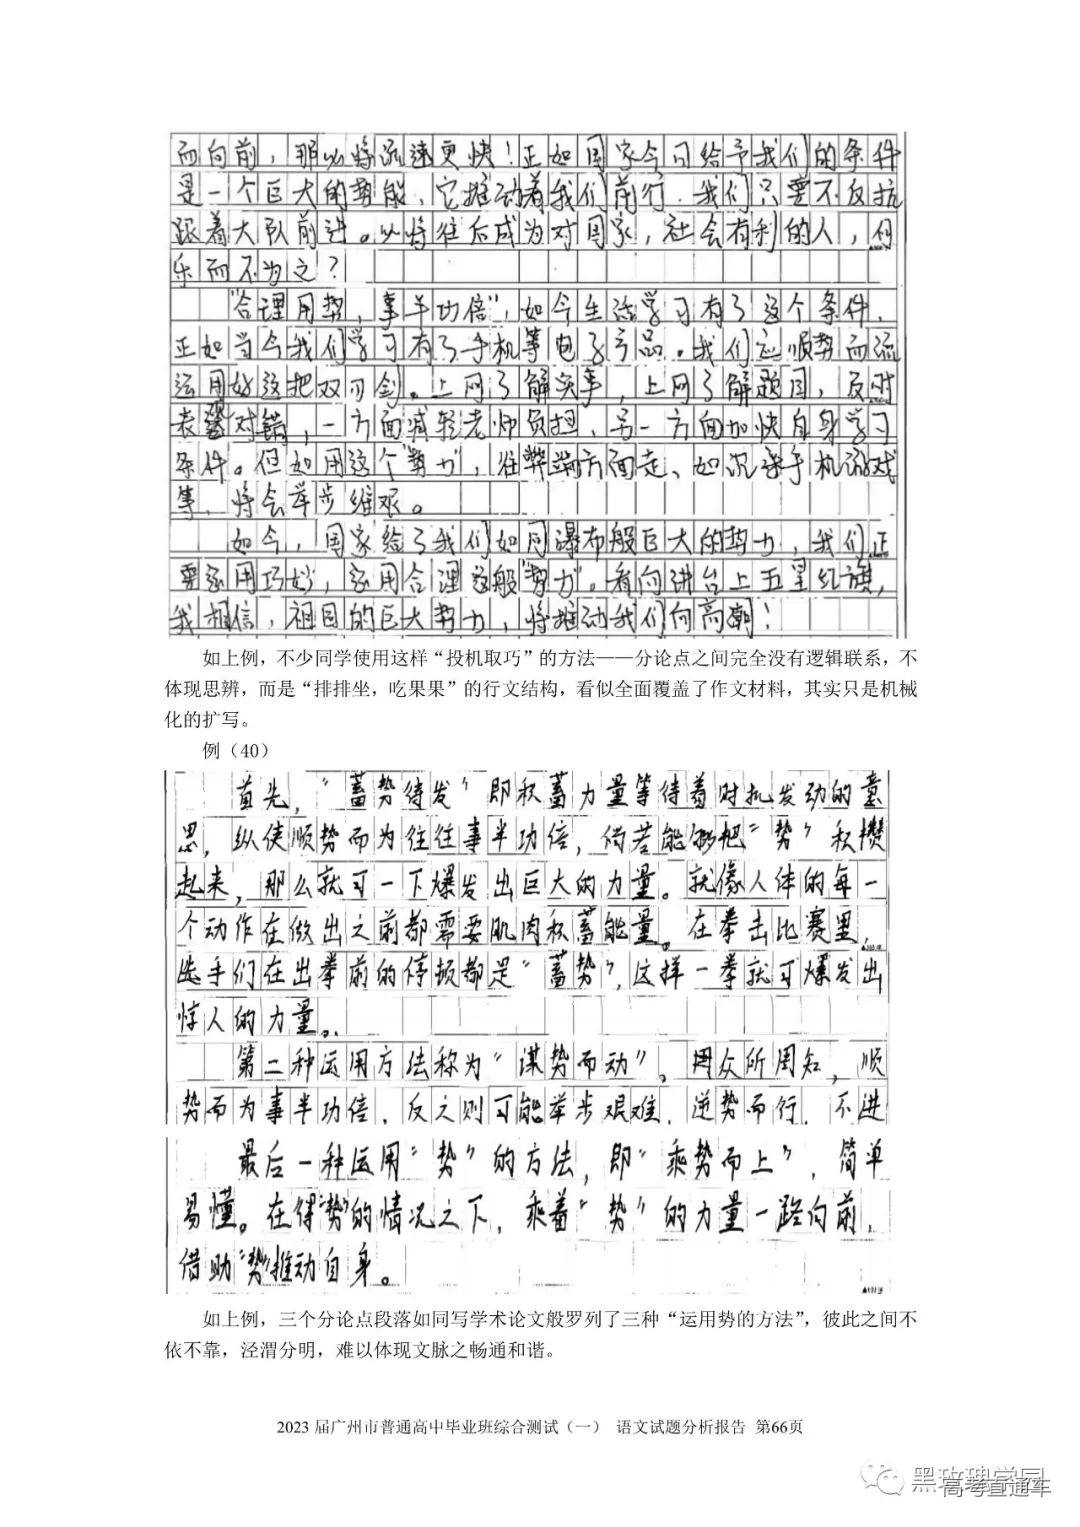 而向前，那必将流速更快！正如国家今日给予我们的条件
是一个巨大的势能，它推动着我们前行。我们只要不反抗
跟着大队前进。必将往后成为对国家，社会有利的人，何
乐而不为之？
“合理用势，事半功倍”，如今生活学习有了这个条件，
正如当今我们学习有了手机等电子产品。我们应顺势而流
运用好这把双刃剑。上网了解实事，上网了解题目，及时
表对错，一方面减轻老师负担，另一方面加快自身学习
条件。但如用这个“势力”，往弊端方面走、如沉迷手机游戏
等，将会举步维艰。
如今，国家给了我们如同瀑布般巨大的势力，我们正
要家用巧妙，家用合理这般“势力”。看向讲台上五星红旗，
我相信，祖国的巨大势力，将推动我们向高潮！
如上例，不少同学使用这样“投机取巧”的方法——分论点之间完全没有逻辑联系，不
体现思辨，而是“排排坐，吃果果”的行文结构，看似全面覆盖了作文材料，其实只是机械
化的扩写。
例（40）
首先，“蓄势待发”即积蓄力量等待着时机发动的意
思，纵使顺势而为往往事半功倍，倘若能够把“势”积攒
起来，那么就可一下爆发出巨大的力量。就像人体的每一
个动作在做出之前都需要肌肉积蓄能量。在拳击比赛里，
选手们在出拳前的停顿都是“蓄势”，这样一拳就可爆发出
惊人的力量。
第二种运用方法称为“谋势而动”。众所周知，顺
势而为事半功倍，反之则可能举步艰难，逆势而行，不进
最后一种运用“势”的方法，即“乘势而上”，简单
易懂。在得“势”的情况之下，乘着“势”的力量一路向前，
借助“势”推动自身。
如上例，三个分论点段落如同写学术论文般罗列了三种“运用势的方法”，彼此之间不
依不靠，泾渭分明，难以体现文脉之畅通和谐。
2023 届广州市普通高中毕业班综合测试（一） 语文试题分析报告 第66页
黑玫瑰学园
高考直通车